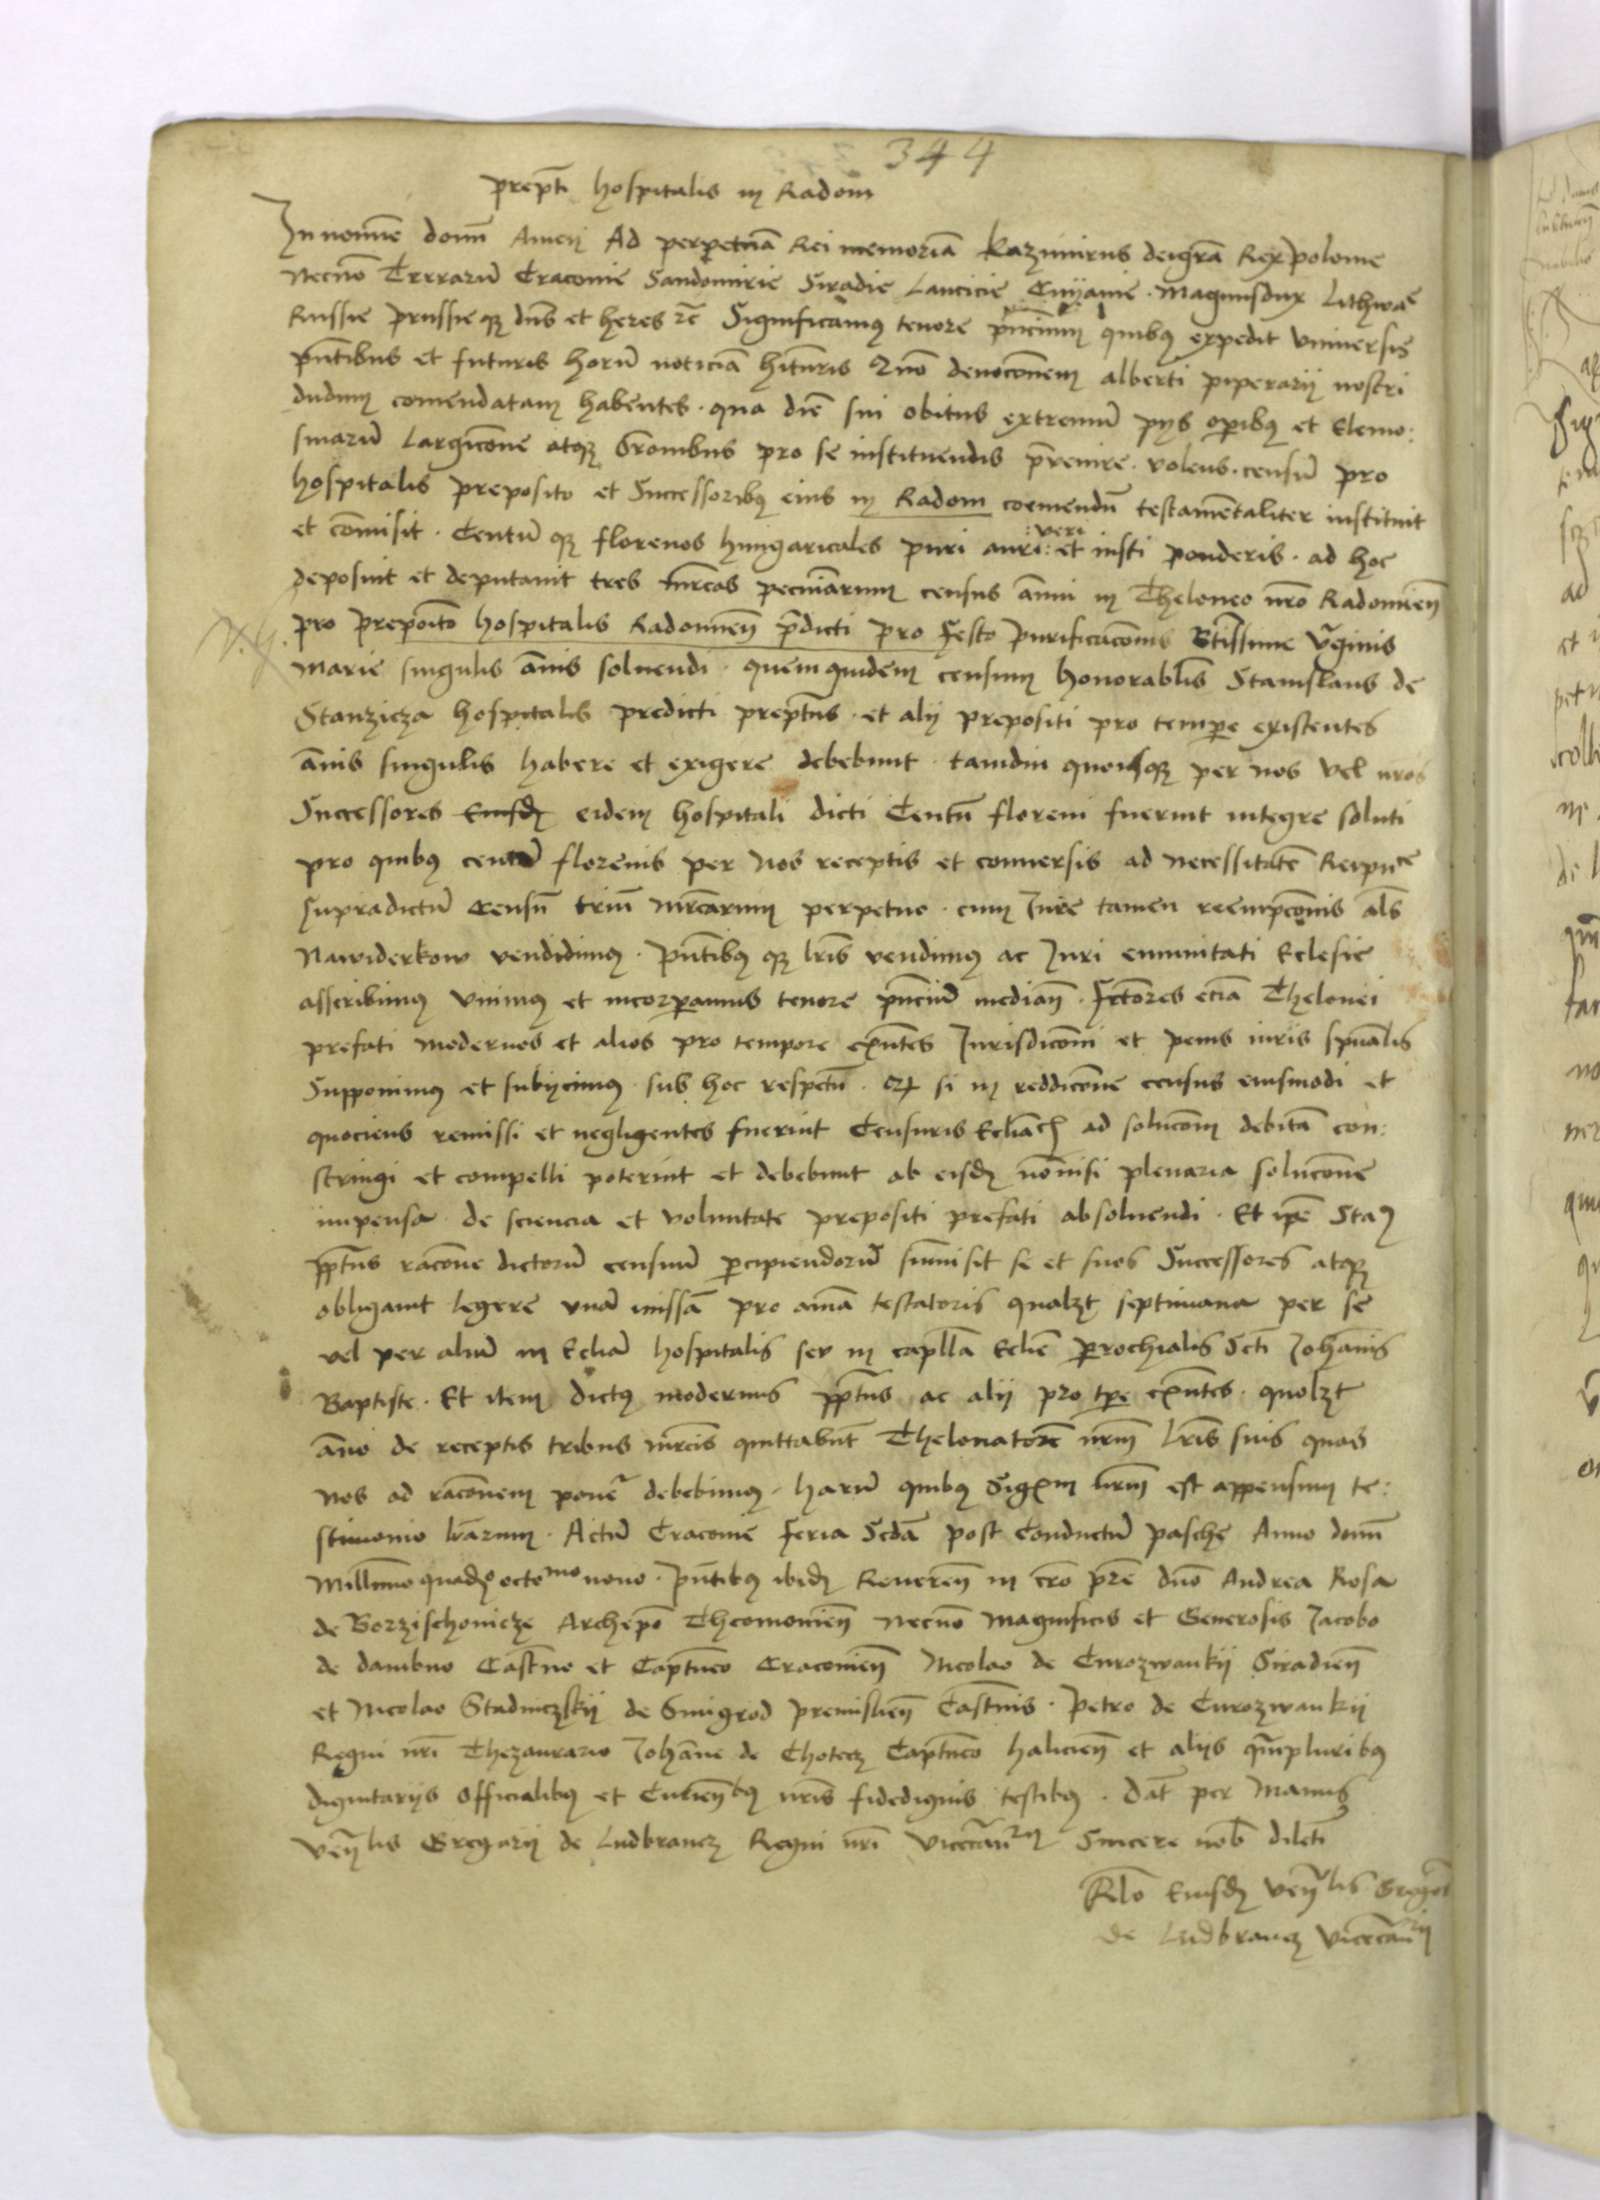 344
prepti hospitalis in Radom
In nomine domi Amen Ad perpetuam Rei memoriam Kazimirus dei gra Rex Polonie
Necno Terrarum Cracovie Sandomirie Siradie Lancicie Cuyavie Magnusdux Lithwae
Russie Prussie qz dns et heres etc Significamus tenore pncium quibus expedit universis
pntibus et futuris horum noticiam hituris Quo devoconem alberti piperarii nostri
dudum comendatam habentes qua diem sui obitus extremum pys operibus et Elemo:
sinarum Largicone atqz Oronibus pro se instituendis prevenire volens censum pro
hospitalis preposito et Successoribus eius in Radom coemendum testamentaliter instituit
et comisit Centum qz florenos hungaricales puri auri :veri: et iusti ponderis ad hoc
deposuit et deputavit tres mrcas pecuniarum census annui in Theloneo nro Radomien
pro preposito hospitalis Radomien predicti pro Festo purificaconis Btissime virginis
Marie singulis annis solvendi quemquidem censum honorablis Stanislaus de
Stanzicza hospitalis predicti preptus et alii prepositi pro tempore existentes
annis singulis habere et exigere debebunt tamdiu quousqz per nos vel nros
Successores Eiusdem eidem hospitali dicti Centum floreni fuerint integre soluti
pro quibus centum florenis per Nos receptis et conversis ad necessitatem Reipuce
supradictum Censum trium mrcarum perpetuo cum Jure tamen reempconis als
Nawiderkow vendidimus pntibus qz lris vendimus ac Juri emunitati Eclesie
asscribimus Unimus et incorporamus tenore pncium median Fctores eciam Thelonei
prefati modernos et alios pro tempore exntes Jurisdiconi et penis iuris spualis
Supponimus et subycimus sub hoc respectu qz si in reddicone census eiusmodi et
quociens remissi et negligentes fuerint Censuris Ecliacis ad solucom debitam con:
stringi et compelli poterint et debebunt ab eisdem nonnisi plenaria solucone
impensa de sciencia et voluntate prepositi prefati absolvendi Et ipe Stas
pptus racone dictorum censuum percipiendorum sumisit se et suos Successores atqz
obligavit legere unam missam pro anima testatoris qualzt septimana per se
vel per alium in Ecliam hospitalis seu in capella Eclie parochialis Scti Johannis
Baptiste Et item dictus modernus pptus ac alii pro tpe exntes quolzt
anno de receptis tribus mrcis quittabunt Thelonatorem nrm lris suis quas
nos ad raconem ponere debebimus harum quibus Sigm nrm est appensum te:
stimonio lrarum Actum Cracovie Feria Scda post Conductum pasche Anno domi
Millimo quadro octomo nono pntibus ibidem Reveren in cro pre dno Andrea Rosa
de Borzischovicze Archepo necno Magnificis et Generosis Jacobo
de dambno Castno et Captneo Cracovien Nicolao de Curozwankii Siradien
et Nicolao Stadniczskii de Smigrod premislien Castnis Petro de Curozwankii
Regni nri Thezaurario Johanne de Chotecz Captneo halicien et aliis qmpluribus
dignitariis Officialibus et Curienbus nris fidedignis testibus Dat per Manus
venlis Gregorii de Ludbrancz Regni nri vicecanrii Sincere nob dilcti
Rlo Eiusdem venlis Gregorii
de Ludbrancz vicecanrii